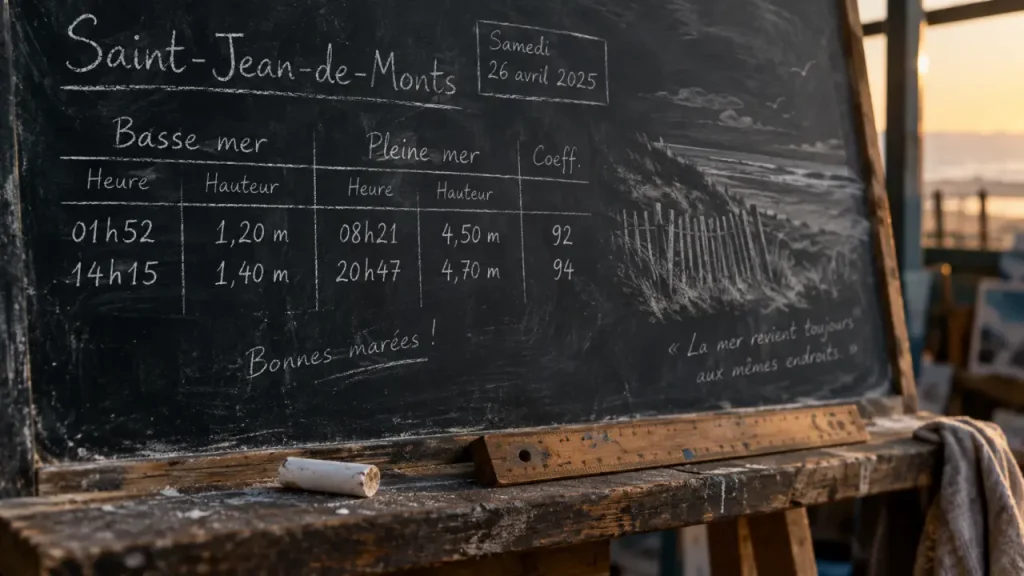 Saint-Jean-de-Monts
Samedi
26 avril 2025
Basse mer Pleine mer Coeff.
Heure Hauteur Heure Hauteur
01h52 1,20 m 08h21 4,50 m 92
14h15 1,40 m 20h47 4,70 m 94
Bonnes marées !
« La mer revient toujours
aux mêmes endroits. »